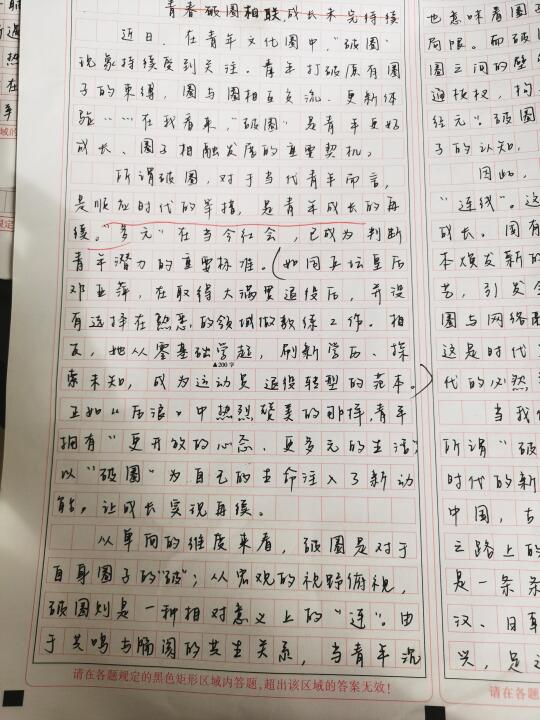 青春破圈相联 成长未完待续
近日，在青年文化圈中，“破圈”
现象持续受到关注。青年打破原有圈
子的束缚，圈与圈相互交流、更新体
验……在我看来，“破圈”是青年更好
成长、圈子相融发展的重要契机。
所谓破圈，对于当代青年而言，
是顺应时代的举措，是青年成长的再
续。“多元”在当今社会，已成为判断
青年潜力的重要标准。（如同乒坛皇后
邓亚萍，在取得大满贯退役后，并没
有选择在熟悉的领域做教练工作。相
反，她从零基础学起，刷新学历、探
▲200字
索未知，成为运动员退役转型的范本。）
正如《后浪》中热烈赞美的那样，青年
拥有“更开放的心态、更多元的生活”
以“破圈”为自己的生命注入了新动
能，让成长实现再续。
从单向的维度来看，破圈是对于
自身圈子的“破”；从宏观的视野俯视，
破圈则是一种相对意义上的“连”。由
于共鸣与隔阂的共生关系，当青年沉
请在各题规定的黑色矩形区域内答题，超出该区域的答案无效！
也意味着圈
局限。而破
圈之间的壁
通板权，拘
经元”。破圈
子的认知，
因此，
“连线”。这
成长。国有
本焕发新的
艺，引发全
圈与网络
这是时代
代的必然
当我们
所谓“破
时代的新
中国，古
之路上的
是一条条
汉、日
兴，是